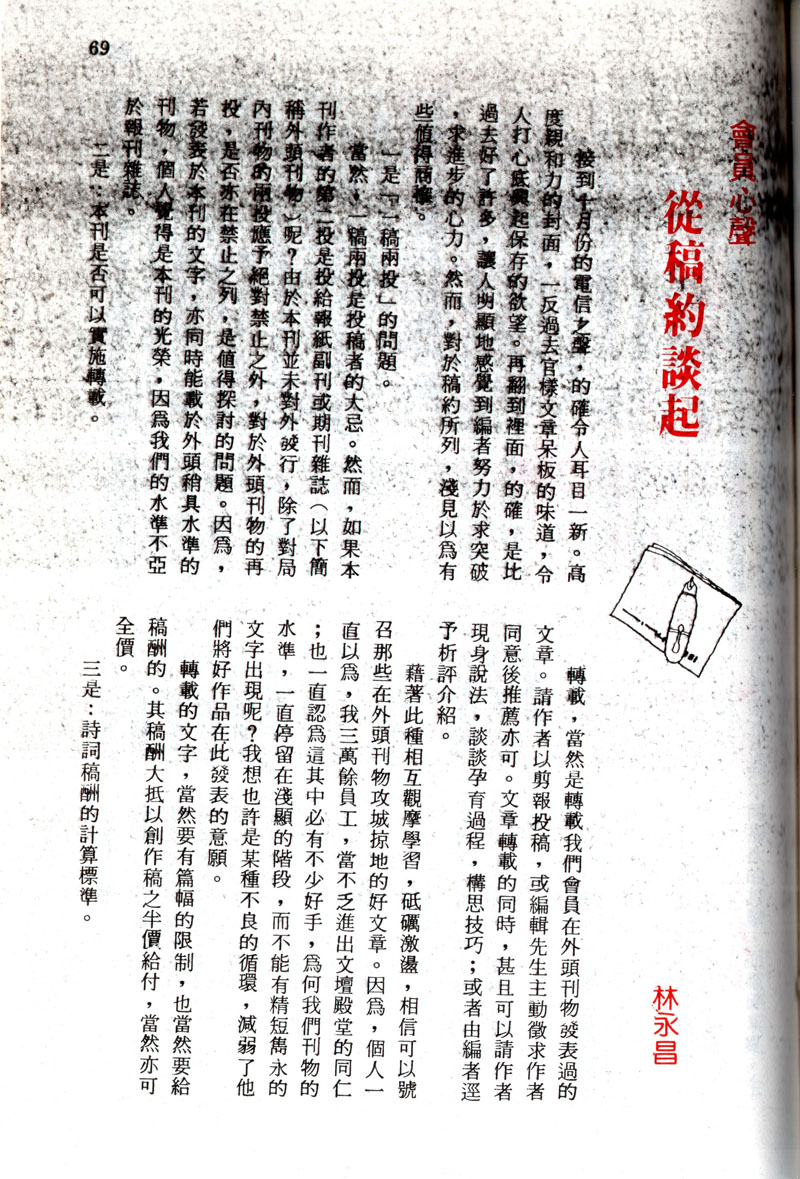 69
會員心聲
從稿約談起
林永昌
接到十月份的電信之聲，的確令人耳目一新。高
度親和力的封面，一反過去官樣文章呆板的味道，令
人打心底興起保存的欲望。再翻到裡面，的確，是比
過去好了許多，讓人明顯地感覺到編者努力於求突破
，求進步的心力。然而，對於稿約所列，淺見以為有
些值得商榷。
一是「一稿兩投」的問題。
當然，一稿兩投是投稿者的大忌。然而，如果本
刊作者的第二投是投給報紙副刊或期刊雜誌（以下簡
稱外頭刊物）呢？由於本刊並未對外發行，除了對局
內刊物的兩投應予絕對禁止之外，對於外頭刊物的再
投，是否亦在禁止之列，是值得探討的問題。因為，
若發表於本刊的文字，亦同時能載於外頭稍具水準的
刊物，個人覺得是本刊的光榮，因為我們的水準不亞
於報刊雜誌。
二是：本刊是否可以實施轉載。
轉載，當然是轉載我們會員在外頭刊物發表過的
文章。請作者以剪報投稿，或編輯先生主動徵求作者
同意後推薦亦可。文章轉載的同時，甚且可以請作者
現身說法，談談孕育過程，構思技巧；或者由編者逕
予析評介紹。
藉著此種相互觀摩學習，砥礪激盪，相信可以號
召那些在外頭刊物攻城掠地的好文章。因為，個人一
直以為，我三萬餘員工，當不乏進出文壇殿堂的同仁
；也一直認為這其中必有不少好手，為何我們刊物的
水準，一直停留在淺顯的階段，而不能有精短雋永的
文字出現呢？我想也許是某種不良的循環，減弱了他
們將好作品在此發表的意願。
轉載的文字，當然要有篇幅的限制，也當然要給
稿酬的。其稿酬大抵以創作稿之半價給付，當然亦可
全價。
三是：詩詞稿酬的計算標準。